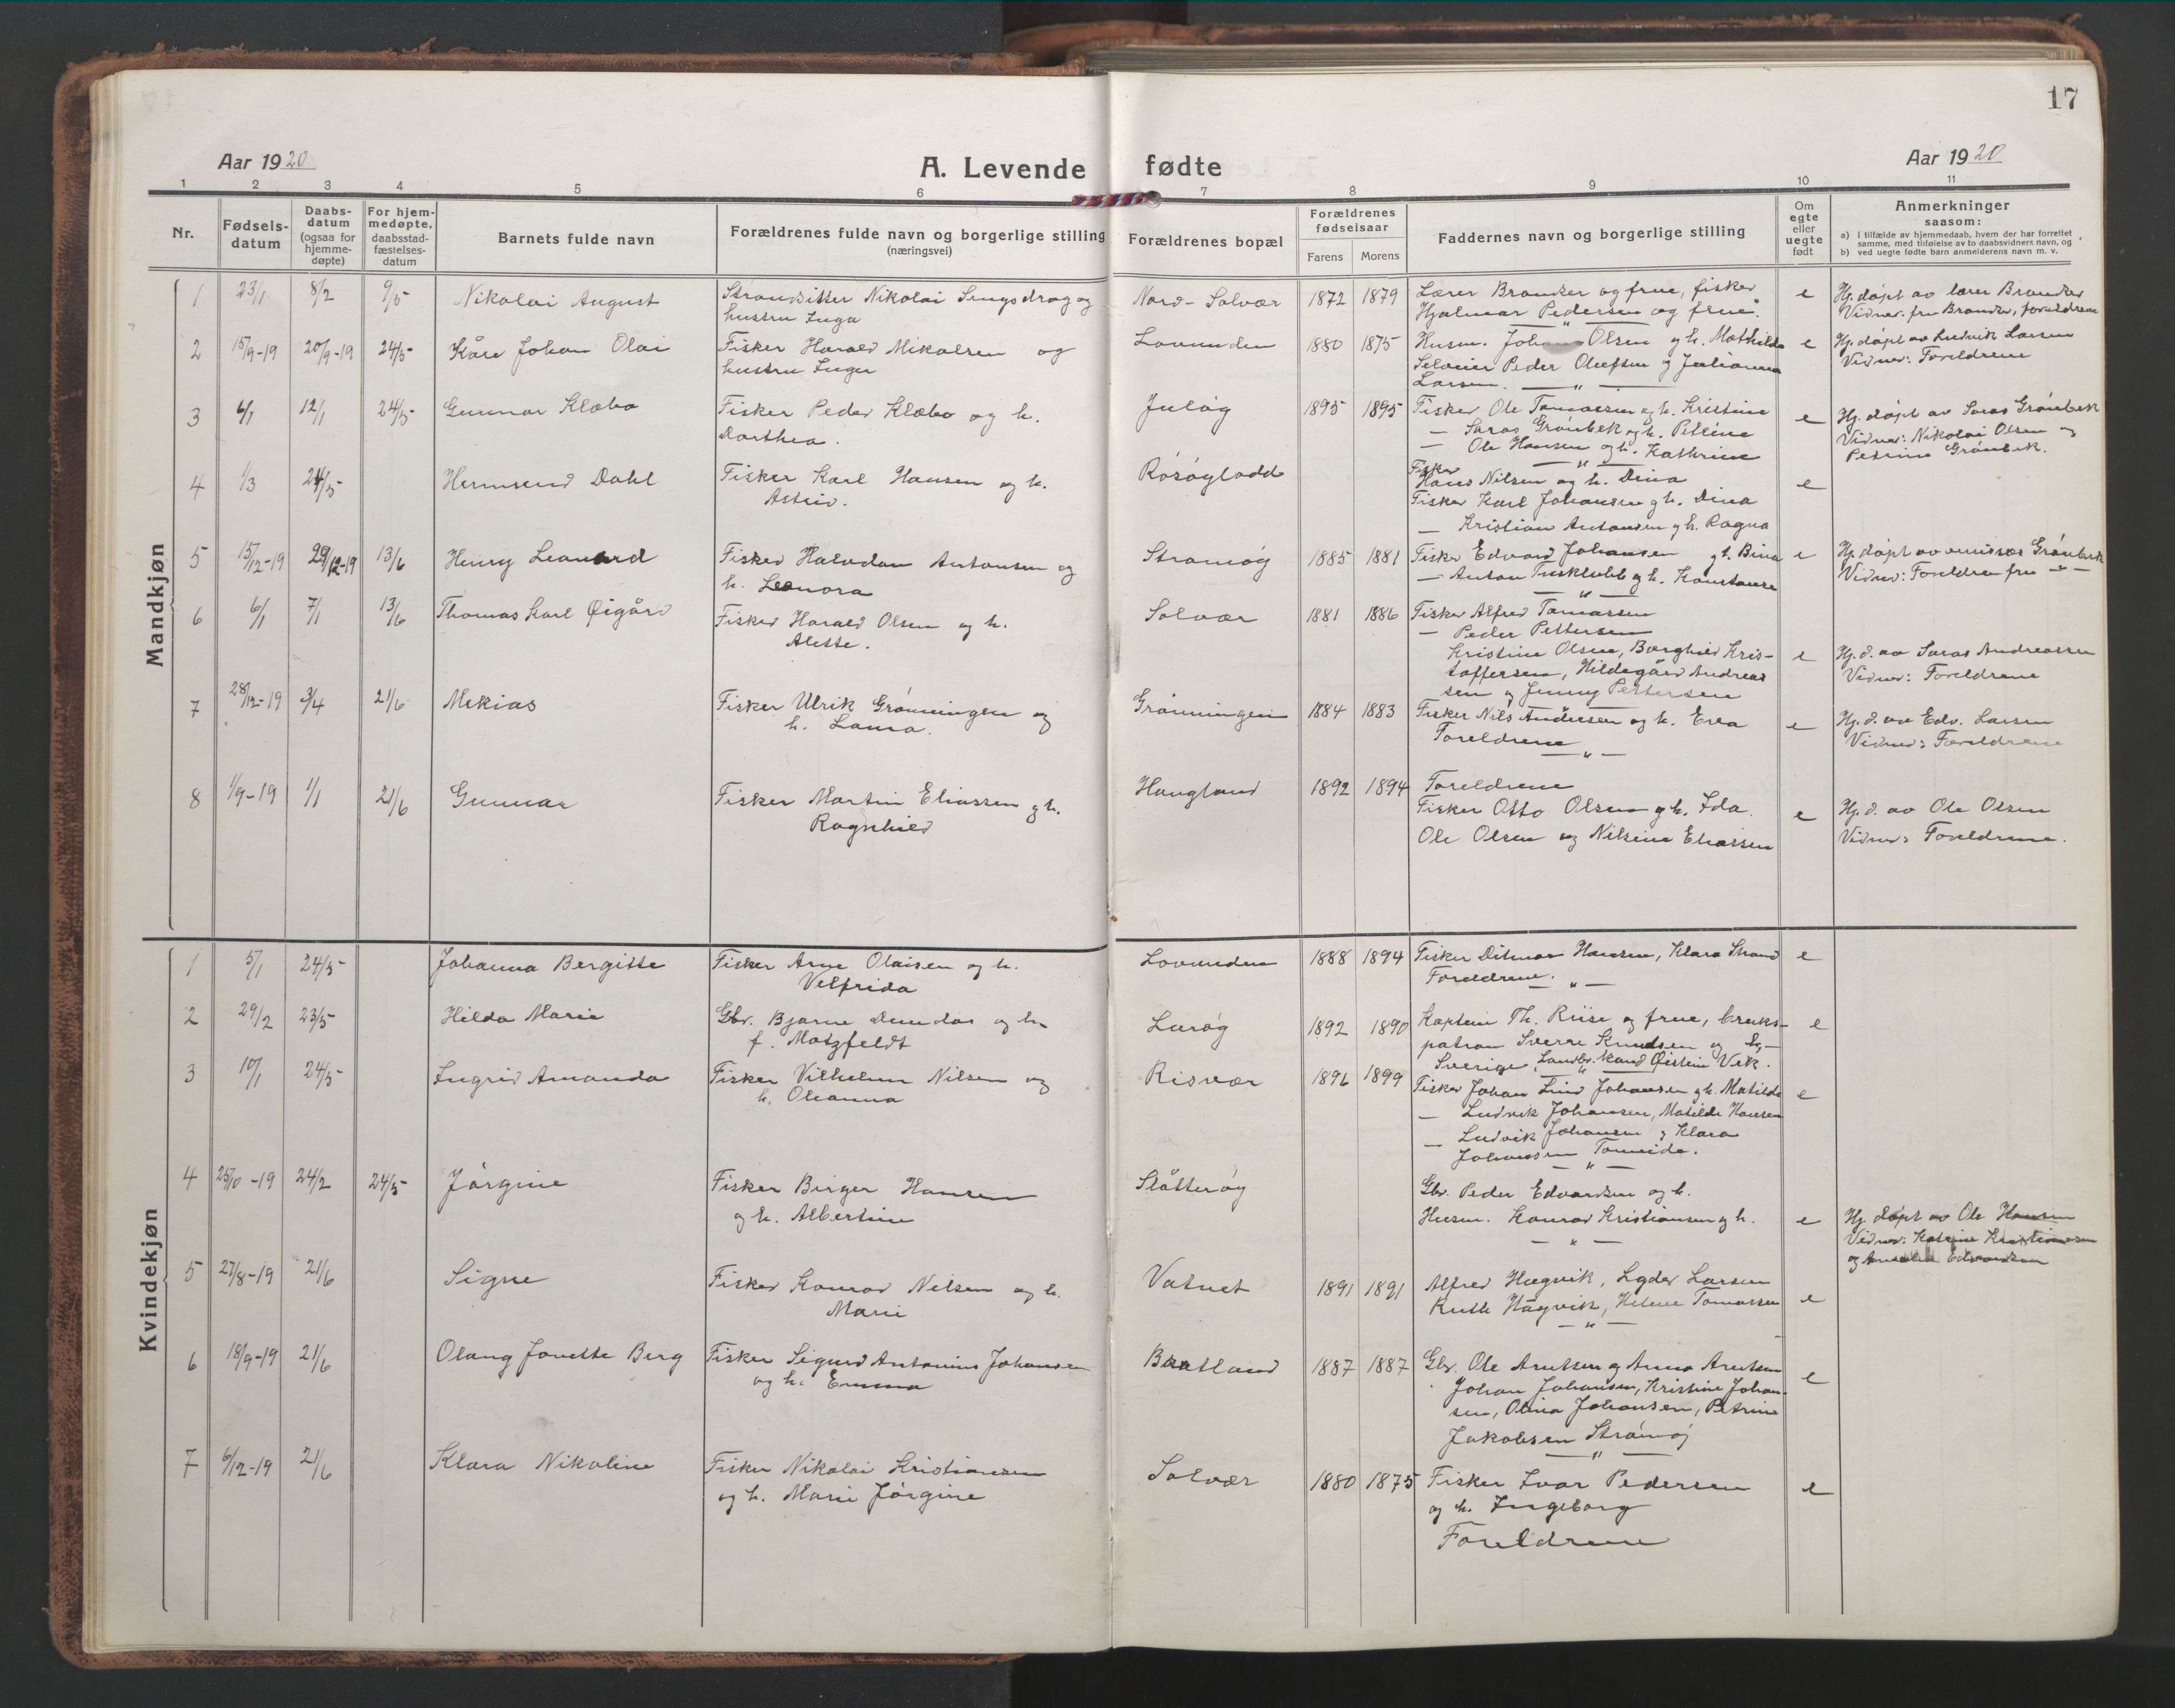 17
Aar 1920
A. Levende fødte
Aar 1920
1 2 3 4 5 6 7 8 9 10 11
Nr.
Fødsels-
datum
Daabs-
datum
(ogsaa for
hjemme-
døpte)
For hjem-
medøpte,
daabsstad-
fæstelses-
datum
Barnets fulde navn
Forældrenes fulde navn og borgerlige stilling
(næringsvei)
Forældrenes bopæl
Forældrenes
fødselsaar
Farens Morens
Faddernes navn og borgerlige stilling
Om
egte
eller
uegte
født
Anmerkninger
saasom:
a) i tilfælde av hjemmedaab, hvem der har forrettet
samme, med tilføielse av to daabsvidners navn, og
b) ved uegte fødte barn anmelderens navn m. v.
Mandkjøn
1 23/1 8/2 9/5 Nikolai August
Strandsitter Nikolai Sengsdrag og
hustru Inga
Nord-Solvær 1872 1879
Lærer Brandser og frue, fisker
Hjalmar Pedersen og frue.
e
Hj. døpt av lærer Brandser
Vidner: fru Brandser, foreldrene
2 15/9-19 20/9-19 24/5 Kåre Johan Olai
Fisker Harald Mikalsen og
hustru Inger
Lovunden 1880 1875
Husm. Johan Olsen og h. Mathilde
Selveier Peder Olufsen og Julianna
Larsen. — " —
e
Hj. døpt av Ludvik Larsen
Vidner: Foreldrene
3 6/1 12/1 24/5 Gunnar Klæbo
Fisker Peder Klæbo og h.
Dorthea.
Juløg 1895 1895
Fisker Ole Tomassen og h. Kristine
— Saras Grønbek og h. Petrine
— Ole Hansen og h. Kathrine
— " —
e
Hj. døpt av Saras Grønbek
Vidner: Nikolai Olsen og
Petrine Grønbek.
4 1/3 24/5 Hermund Dahl
Fisker Karl Hansen og h.
Astrid.
Røsøglodd
Fisker
Hans Nilsen og h. Dina
Fisker Karl Johansen og h. Dina
— Kristian Antonsen og h. Ragna
e
5 15/12-19 29/12-19 13/6 Henry Leonard
Fisker Halvdan Antonsen og
h. Leonora
Strømøg 1885 1881
Fisker Edvard Johansen og h. Bina
— Anton Tusklubb og h. Konstanse
— " —
e
Hj. døpt av emissær Grønbek
Vidner: Foreldre fru — " —
6 6/1 7/1 13/6 Thomas Karl Øigård
Fisker Harald Olsen og h.
Alette.
Solvær 1881 1886
Fisker Alfred Tomassen
— Peder Pettersen
Kristine Olsen, Borghild Kris-
toffersen, Hildegård Andreas
sen og Jenny Pettersen
e
Hj. d. av Saras Andreassen
Vidner: Foreldrene
7 28/12-19 3/4 21/6 Mekias
Fisker Ulrik Grønningen og
h. Laura.
Grønningen 1884 1883
Fisker Nils Andersen og h. Erea
Foreldrene
— " —
e
Hj. d. av Edv. Larsen
Vidner: Foreldrene
8 1/9-19 1/1 21/6 Gunnar
Fisker Martin Eliassen og h.
Ragnhild
Haugland 1892 1894
Foreldrene
Fisker Otto Olsen og h. Ida.
Ole Olsen og Nilsine Eliassen
e
Hj. d. av Ole Olsen
Vidner: Foreldrene.
Kvindekjøn
1 5/1 24/5 Johanna Bergitte
Fisker Arne Olaisen og h.
Velfrida
Lovunden 1888 1894
Fisker Ditmar Hansen, Klara Strand
Foreldrene.
— " —
e
2 29/2 23/5 Hilda Marie
Gbr. Bjarne Dundas og h.
f. Motzfeldt
Lurøg 1892 1890
Kaptein Th. Riise og frue, bruks-
patron Sverre Knudsen og
Sverige, Landbr. kand Øistein Vik.
e
3 10/1 24/5 Ingrid Amanda
Fisker Vilhelm Nilsen og
h. Oleanna
Risvær 1896 1899
Fisker Johan Lind Johansen og h. Matilde
— Ludvik Johansen, Matilde Hansen
— Ludvik Johansen og Klara
Johansen Tonneide.
— " —
e
4 25/10-19 24/2 24/5 Jørgine
Fisker Birger Hansen
og h. Albertine
Slåtterøg
Gbr. Peder Edvardsen og h.
Husm. Konrad Kristiansen og h.
— " —
e
Hj. døpt av Ole Hansen
Vidner: Katrine Kristiansen
og Edvardsen
5 27/8-19 21/6 Signe
Fisker Konrad Nilsen og h.
Marie
Vatnet 1891 1891
Alfred Hægvik, Lyder Larsen
Ruth Hægvik, Helene Tomassen
— " —
e
6 18/9-19 21/6 Olaug Jonette Berg
Fisker Sigurd Antonius Johansen
og h. Emma
Bratland 1887 1887
Gbr. Ole Arntsen og Anna Arntsen
Johan Johansen, Kristine Johan-
sen, Olina Johansen, Petrine
Jakobsen Strømøj
— " —
e
7 6/12-19 21/6 Klara Nikoline
Fisker Nikolai Kristiansen
og h. Marie Jørgine
Solvær 1880 1875
Fisker Ivar Pedersen
og h. Ingeborg
Foreldrene
e